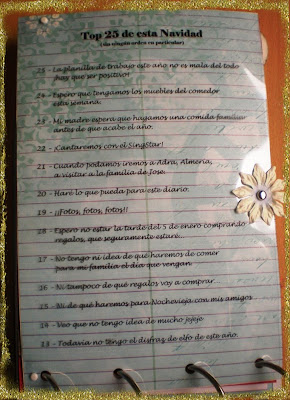 Top 25 de esta Navidad
(sin ningún orden en particular)
25 - La planilla de trabajo este año no es mala del todo
¡hay que ser positivo!
24 - Espero que tengamos los muebles del comedor
esta semana.
23 - Mi madre espera que hagamos una comida familiar
antes de que acabe el año.
22 - ¡Cantaremos con el SingStar!
21 - Cuando podamos iremos a Adra, Almería,
a visitar a la familia de Jose.
20 - Haré lo que pueda para este diario.
19 - ¡¡Fotos, fotos, fotos!!
18 - Espero no estar la tarde del 5 de enero comprando
regalos, que seguramente estaré...
17 - No tengo ni idea de que haremos de comer
para mi familia el día que vengan.
16 - Ni tampoco de que regalos voy a comprar.
15 - Ni de que haremos para Nochevieja con mis amigos.
14 - Veo que no tengo idea de mucho jejeje
13 - Todavía no tengo el disfraz de elfo de este año.